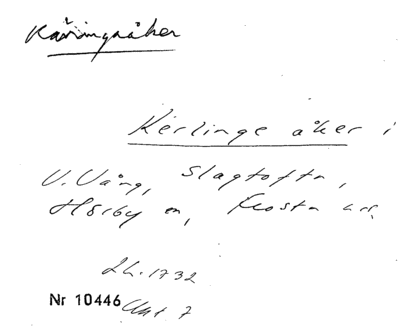 Käringaåker
Kerlinge åker i
V. Vång, Slagtofta,
Hörby sn, Frosta hd.
LL. 1732
Nr 10446 Akt 7